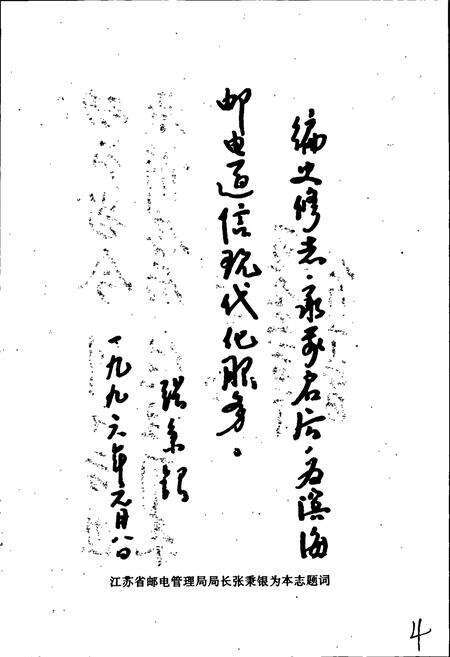 编史修志，承前启后，为滨海
邮电通信现代化服务。
张秉银
一九九六年元月八日
江苏省邮电管理局局长张秉银为本志题词
4